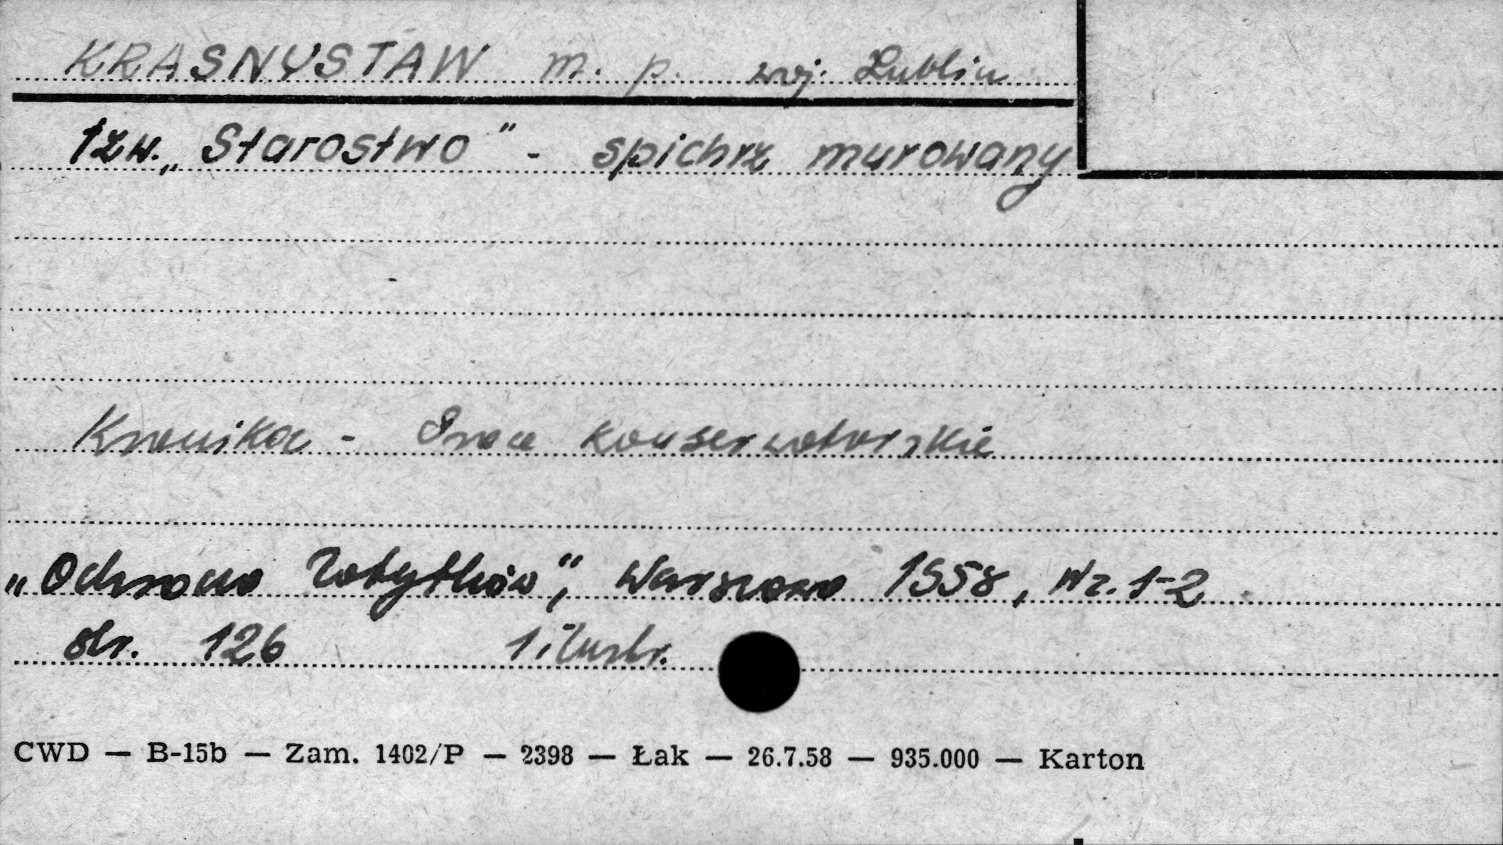 KRASNYSTAW m. p. woj. Lublin
tzw. „Starostwo" - spichrz murowany
Kronika - Prace konserwatorskie
„Ochrona Zabytków", Warszawa 1958, Nr. 1-2
str. 126 1 ilustr.
CWD — B-15b — Zam. 1402/P — 2398 — Łak — 26.7.58 — 935.000 — Karton